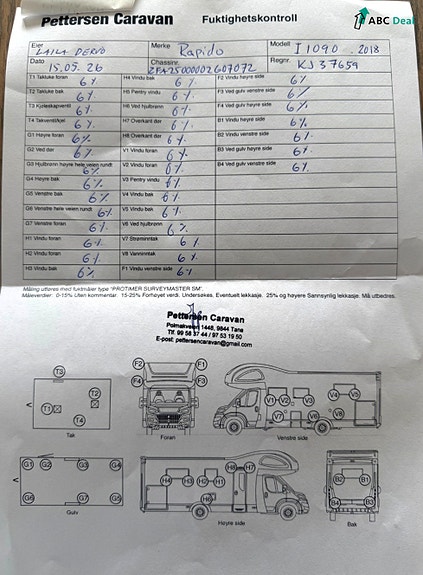 Pettersen Caravan Fuktighetskontroll ABC Deal
Eier Merke Modell
LAILA DERVO Rapido I1090. 2018
Dato Chassinr. Regnr.
15.05.26 ZFA25000002G07072 KJ37659
T1 Takluke foran 6% H4 Vindu bak 6% F2 Vindu høyre side 6%
T2 Takluke bak 6% H5 Pentry vindu 6% F3 Ved gulv venstre side 6%
T3 Kjøleskapventil 6% H6 Ved hjulbrønn 6% F4 Ved gulv høyre side 6%
T4 Takventil/kjøl 6% H7 Overkant dør 6% B1 Vindu høyre side 6%
G1 Høyre foran 6% H8 Overkant dør 6% B2 Vindu venstre side 6%
G2 Ved dør 6% V1 Vindu foran 6% B3 Ved gulv høyre side 6%
G3 Hjulbrønn høyre hele veien rundt 6% V2 Vindu foran 6% B4 Ved gulv venstre side 6%
G4 Høyre bak 6% V3 Pentry vindu 6%
G5 Venstre bak 6% V4 Vindu bak 6%
G6 Venstre hele veien rundt 6% V5 Vindu bak 6%
G7 Venstre foran 6% V6 Ved hjulbrønn 6%
H1 Vindu foran 6% V7 Strøminntak 6%
H2 Vindu foran 6% V8 Vanninntak 6%
H3 Vindu bak 6% F1 Vindu venstre side 6%
Måling utføres med fuktmåler type "PROTIMER SURVEYMASTER SM".
Måleverdier: 0-15% Uten kommentar. 15-25% Forhøyet verdi. Undersøkes. Eventuelt lekkasje. 25% og høyere Sannsynlig lekkasje. Må utbedres.
Pettersen Caravan
Polmakveien 1448, 9844 Tana
Tlf. 99 56 37 44 / 97 53 19 50
E-post: pettersencaravan@gmail.com
T3
T2
T1
T4
Tak
F2 F1
F4 F3
Foran
V1 V2 V3 V4 V5
V7 V6 V8
Venstre side
G1 G2 G3 G4
G6 G7 G5
Gulv
H8 H7
H4 H3 H2 H1
H6
Høyre side
B2 B1
B4 B3
Bak